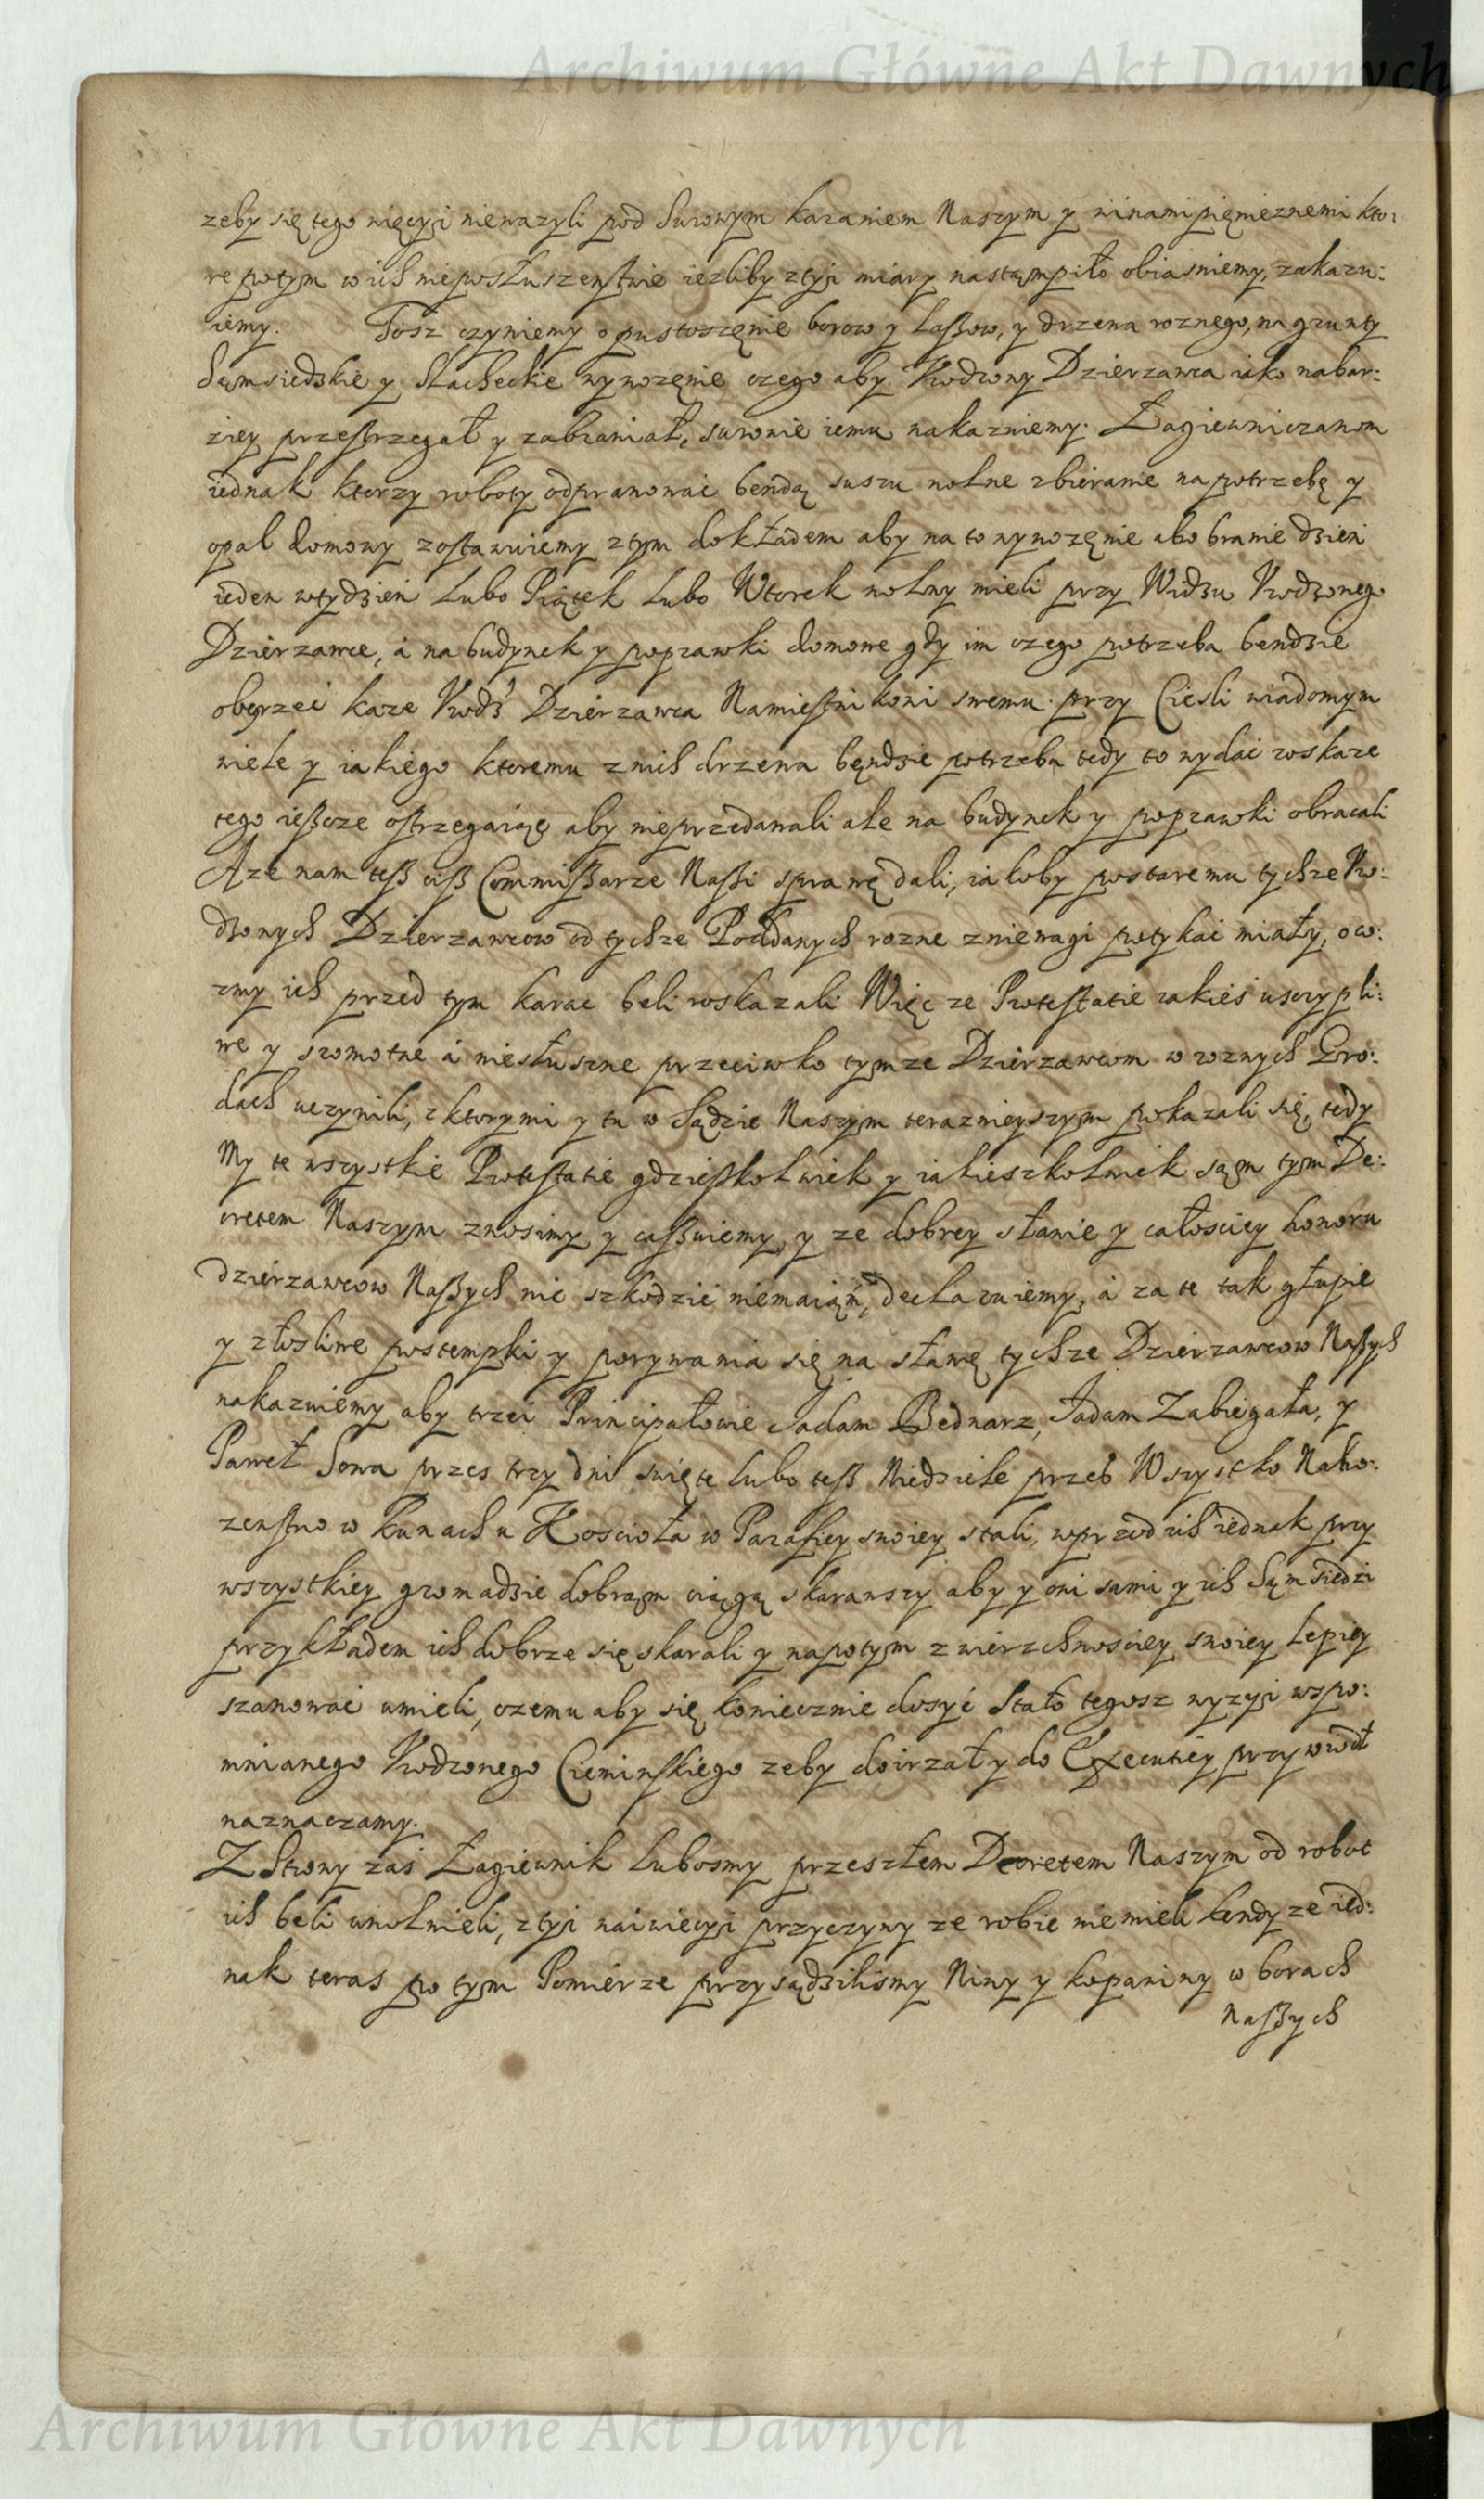 Archiwum Główne Akt Dawnych
zeby się tego więcyi niewazyli pod Surowym karaniem Naszym y winami pięnieznemi kto:
re potym w ich nieposłuszenstwie iezliby ztyi miary nastąmpiło obiasniemy, zakazu:
iemy. Tosz czyniemy o pustoszęnie borow y Lassow, y drzewa roznego, na grunty
Sąmsiedskie y Slacheckie wywozęnie czego aby Vrodzony Dzierzawca iako nabar:
ziey przestrzegał y zabraniał, surowie iemu nakazuiemy. Łagiewniczanom
iednak ktorzy roboty odprawowac bendą suszu wolne zbieranie na potrzebę y
opal domowy zostawuiemy z tym dokładem aby na to wywozęnie abo branie dzien
ieden wtydzien Lubo Piątek Lubo Wtorek wolny mieli przy Widzu Vrodzonego
Dzierzawce, a na budynek y poprawki domowe gdy im czego potrzeba bendzie
obeyrzeć kaze Vrodz Dzierzawca Namiestnikowi swemu przy Ciesli wiadomym
wiele y iakiego ktoremu znich drzewa bęndzie potrzeba tedy to wydać roskaze
tego ieszcze ostrzegaiąc aby nieprzedawali ale na budynek y poprawki obracali
A ze nam tesz cisz Commissarze Nassi sprawę dali, iakoby postaremu tychze Vro:
dzonych Dzierzawcow od tychze Poddanych rozne zniewagi potykać miały, o co:
zmy ich przed tym karac beli roskazali Więc ze Protestatie iakies uszczypli:
we y sromotne a niesłuszne przeciwko tymze Dzierzawcom w roznych Gro:
dach uczynili, z ktorymi y tu w Sądzie Naszym terazniejszym pokazali się, tedy
My te wszystkie Protestatie gdzieszkolwiek y iakieszkolwiek sąm tym De:
cretem Naszym znosimy y cassuiemy, y ze dobrey sławie y całosciey honoru
dzierzawcow Naszych nic szkodzić niemaiąm, declaruiemy, a za te tak głupie
y złosliwe postempki y porywania się na sławę tychze Dzierzawcow Naszych
nakazuiemy aby trzei Principałowie Jadam Bednarz, Jadam Zabiegała, y
Paweł Sowa przes trzy dni swięte lubo tesz Niedziele przes Wszystko Nabo:
zenstwo w Kunach u Koscioła w Parafiey swoiey stali, wprzod ich iednak przy
wszystkiey gromadzie dobrąm ciągą skarawszy aby y oni sami y ich Sąmsiedzi
przykładem ich dobrze się skarali y napotym z wierzchnosciey swoiey Lepiey
szanowac umieli, czemu aby się koniecznie dosyć Stało tegosz wyzyi wspo:
mnianego Vrodzonego Cieminskiego zeby doirzał y do Executiey przywiodł
naznaczamy.
Z Strony zas Łagiewnik Lubosmy przeszłem Decretem Naszym od robot
ich beli uwolnieli, z tyi naiwiecyi przyczyny ze robic nie mieli kendy ze ied:
nak teras po tym Pomierze przysądzilismy Niwy y kopaniny w borach
Naszych
Archiwum Główne Akt Dawnych